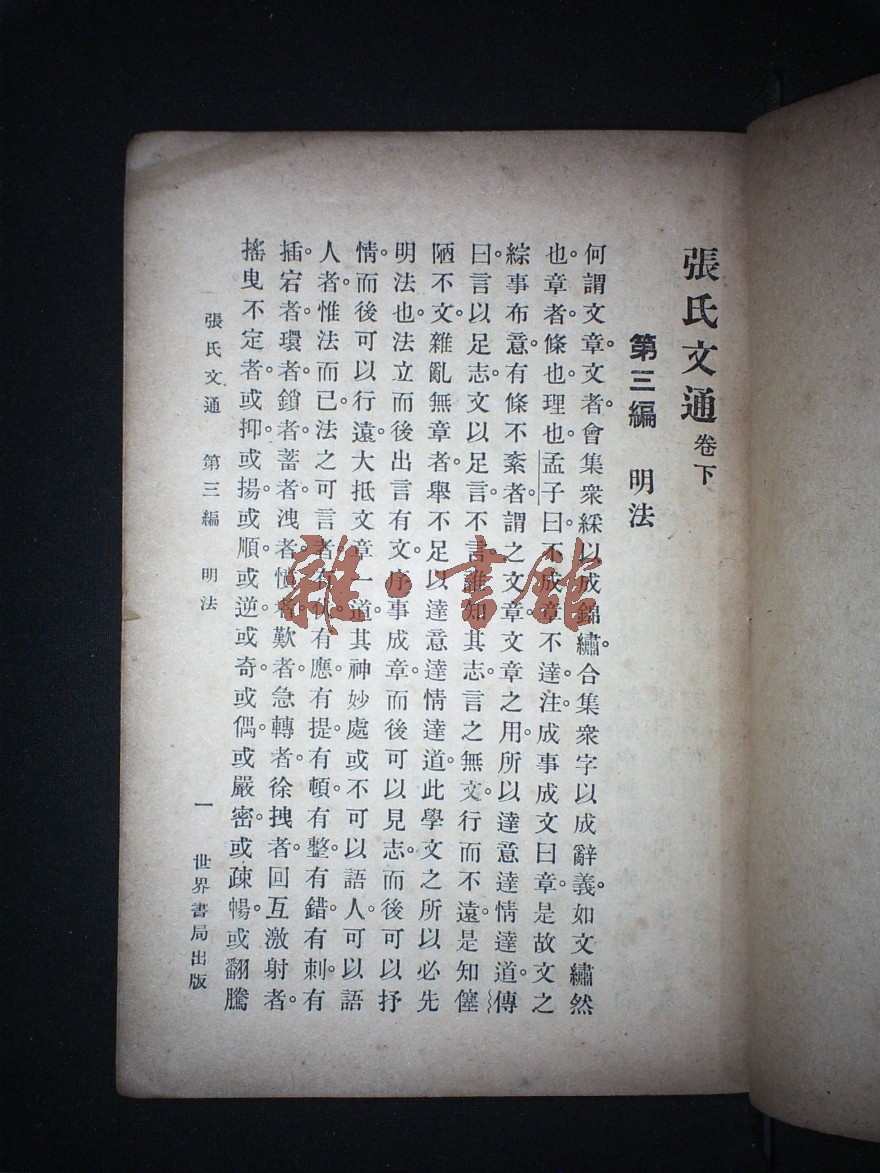 張氏文通 卷下
第三編 明法
何謂文章。文者。會集衆綵以成錦繡。合集衆字以成辭義。如文繡然
也。章者。條也。理也。孟子曰。不成章不達。注。成事成文曰章。是故文之
綜事布意。有條不紊者。謂之文章。文章之用。所以達意達情達道。傳
曰。言以足志。文以足言。不言。誰知其志。言之無文。行而不遠。是知僿
陋不文。雜亂無章者。舉不足以達意達情達道。此學文之所以必先
明法也。法立而後出言有文。序事成章。而後可以見志。而後可以抒
情。而後可以行遠。大抵文章一道。其神妙處。或不可以語人。可以語
人者。惟法而已。法之可言者。有伏。有應。有提。有頓。有整。有錯。有刺。有
插。宕者。環者。鎖者。蓄者。洩者。憤者。歎者。急轉者。徐拽者。回互激射者。
搖曳不定者。或抑。或揚。或順。或逆。或奇。或偶。或嚴密。或疎暢。或翻騰
張氏文通 第三編 明法 一 世界書局出版
雜·書館